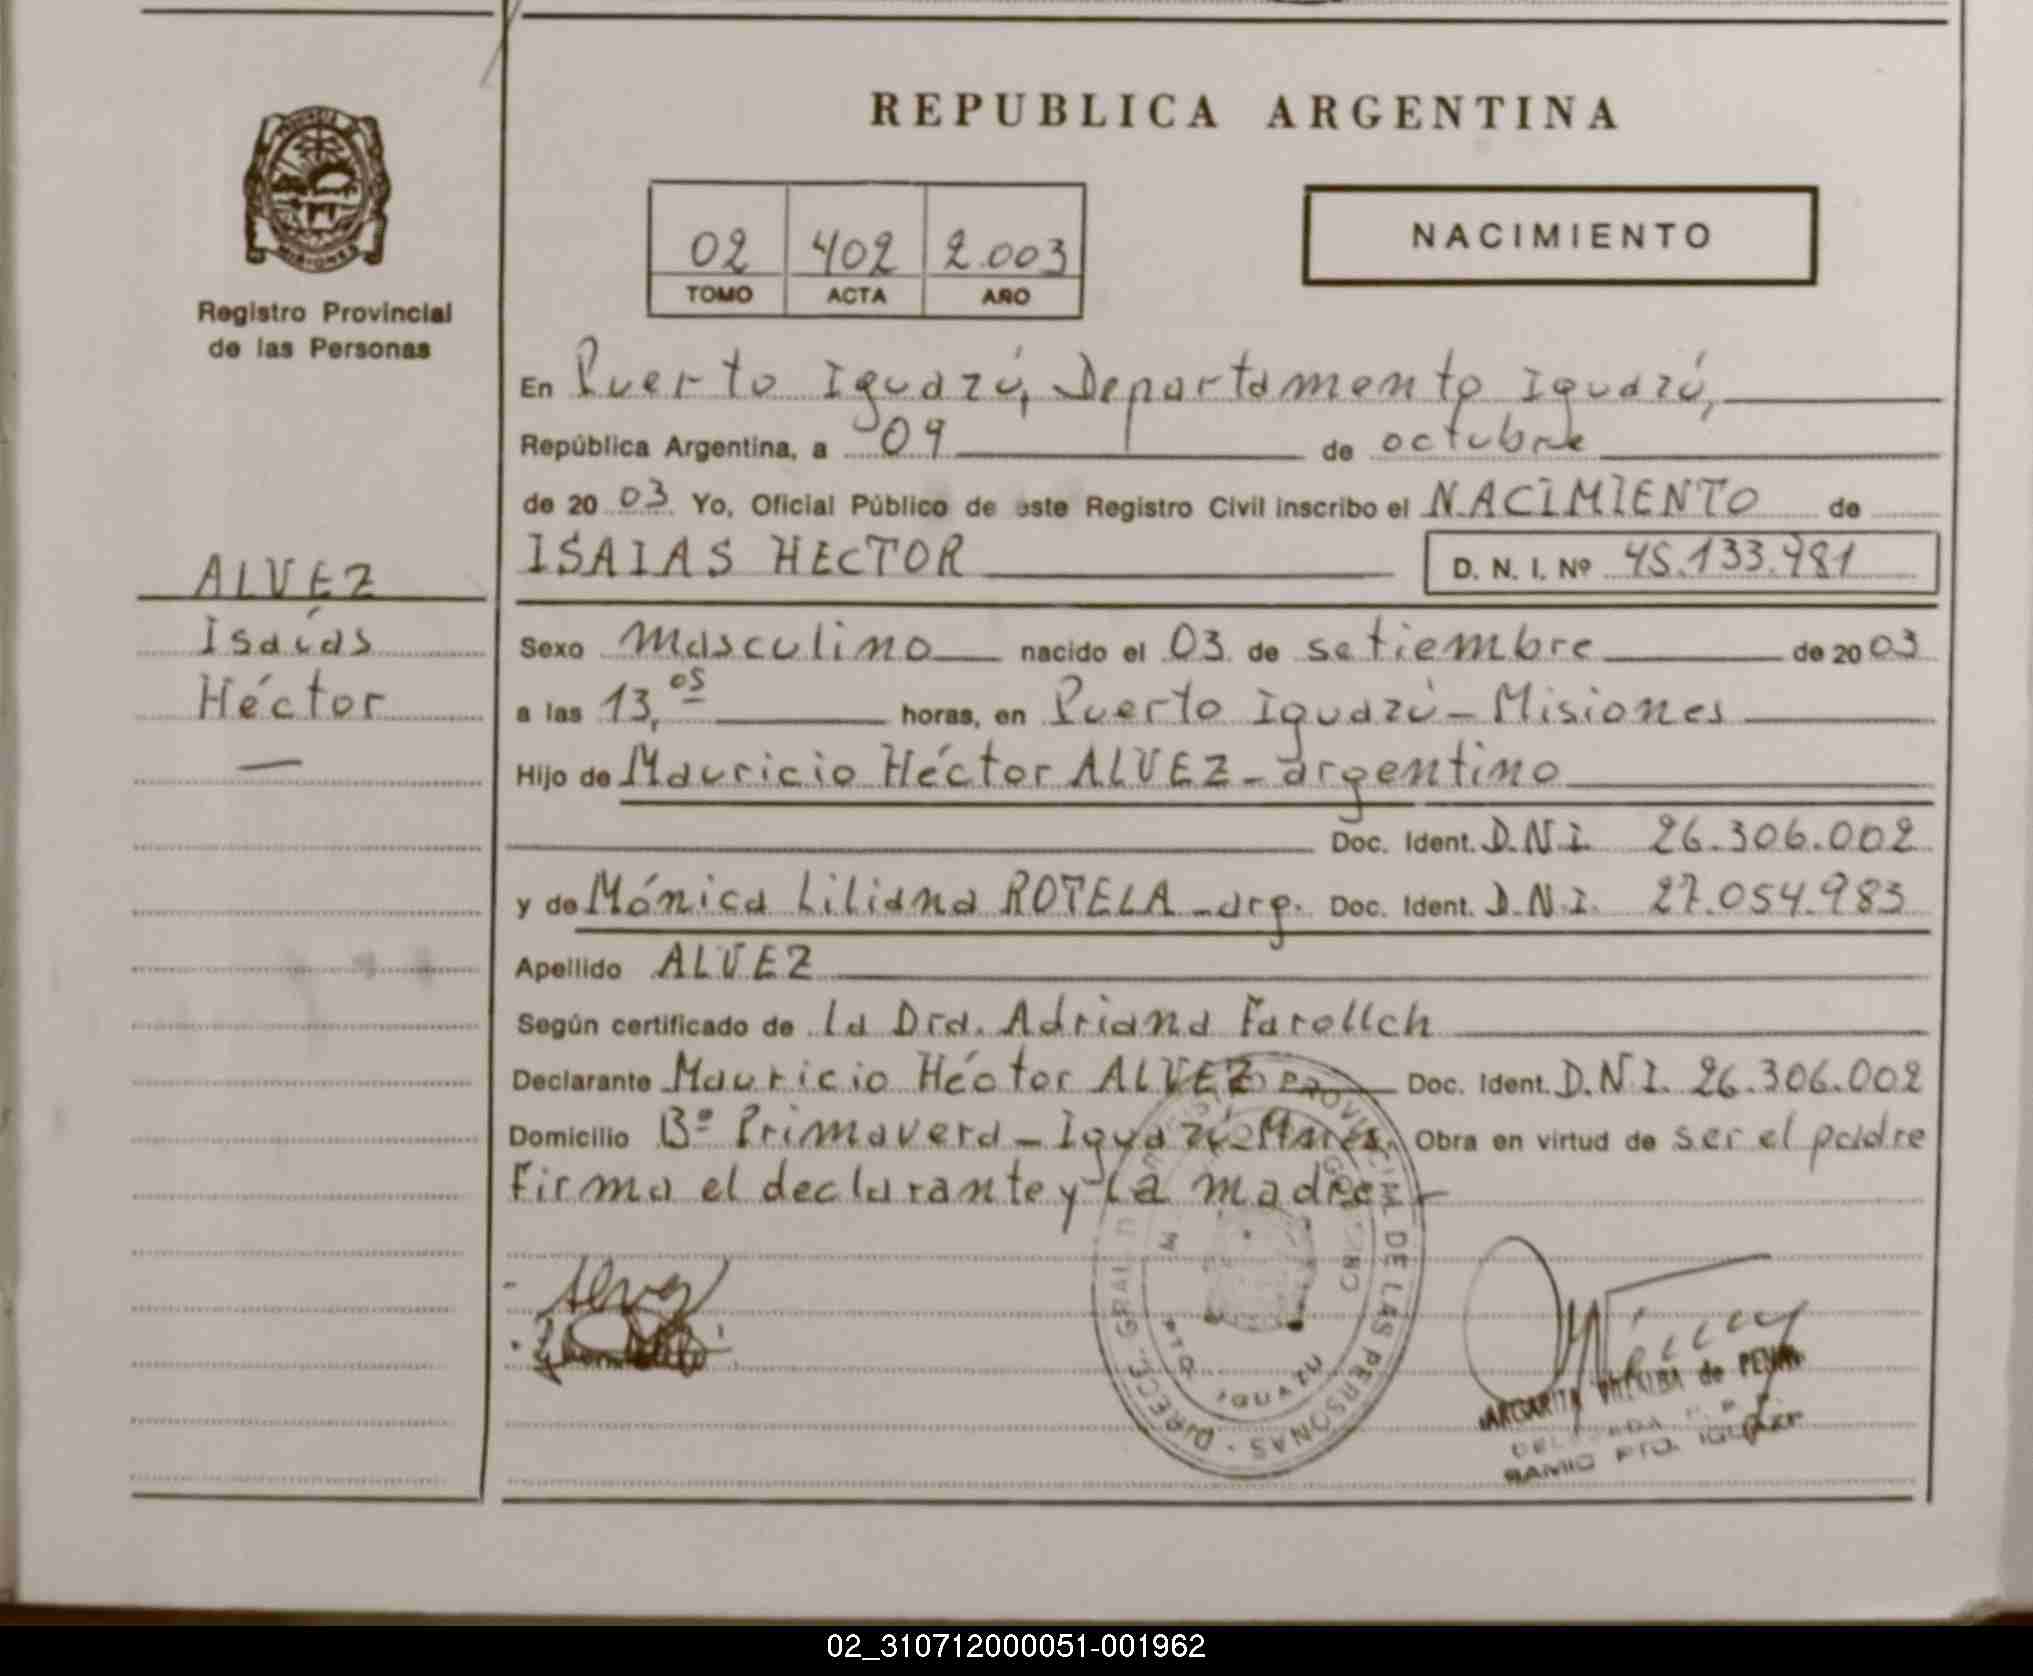 REPUBLICA ARGENTINA
02 402 2.003
TOMO ACTA AÑO
NACIMIENTO
Registro Provincial
de las Personas
ALVEZ
Isaías
Héctor
—
En Puerto Iguazú, Departamento Iguazú,
República Argentina, a 09 de octubre
de 20 03 Yo, Oficial Público de este Registro Civil inscribo el NACIMIENTO de
ISAIAS HECTOR D. N. I. Nº 45.133.481
Sexo masculino nacido el 03 de setiembre de 20 03
a las 13,05 horas, en Puerto Iguazú - Misiones
Hijo de Mauricio Héctor ALVEZ - argentino
Doc. Ident. D.N.I. 26.306.002
y de Mónica Liliana ROTELA - arg. Doc. Ident. D.N.I. 27.054.983
Apellido ALVEZ
Según certificado de la Dra. Adriana
Declarante Mauricio Héctor ALVEZ Doc. Ident. D.N.I. 26.306.002
Domicilio Bº Primavera - Iguazú - Mnes. Obra en virtud de ser el padre
Firma el declarante y la madre -
Alvez
DIRECC. GRAL. DE LAS PERSONAS
PTO. IGUAZU
de
PTO.
02_310712000051-001962